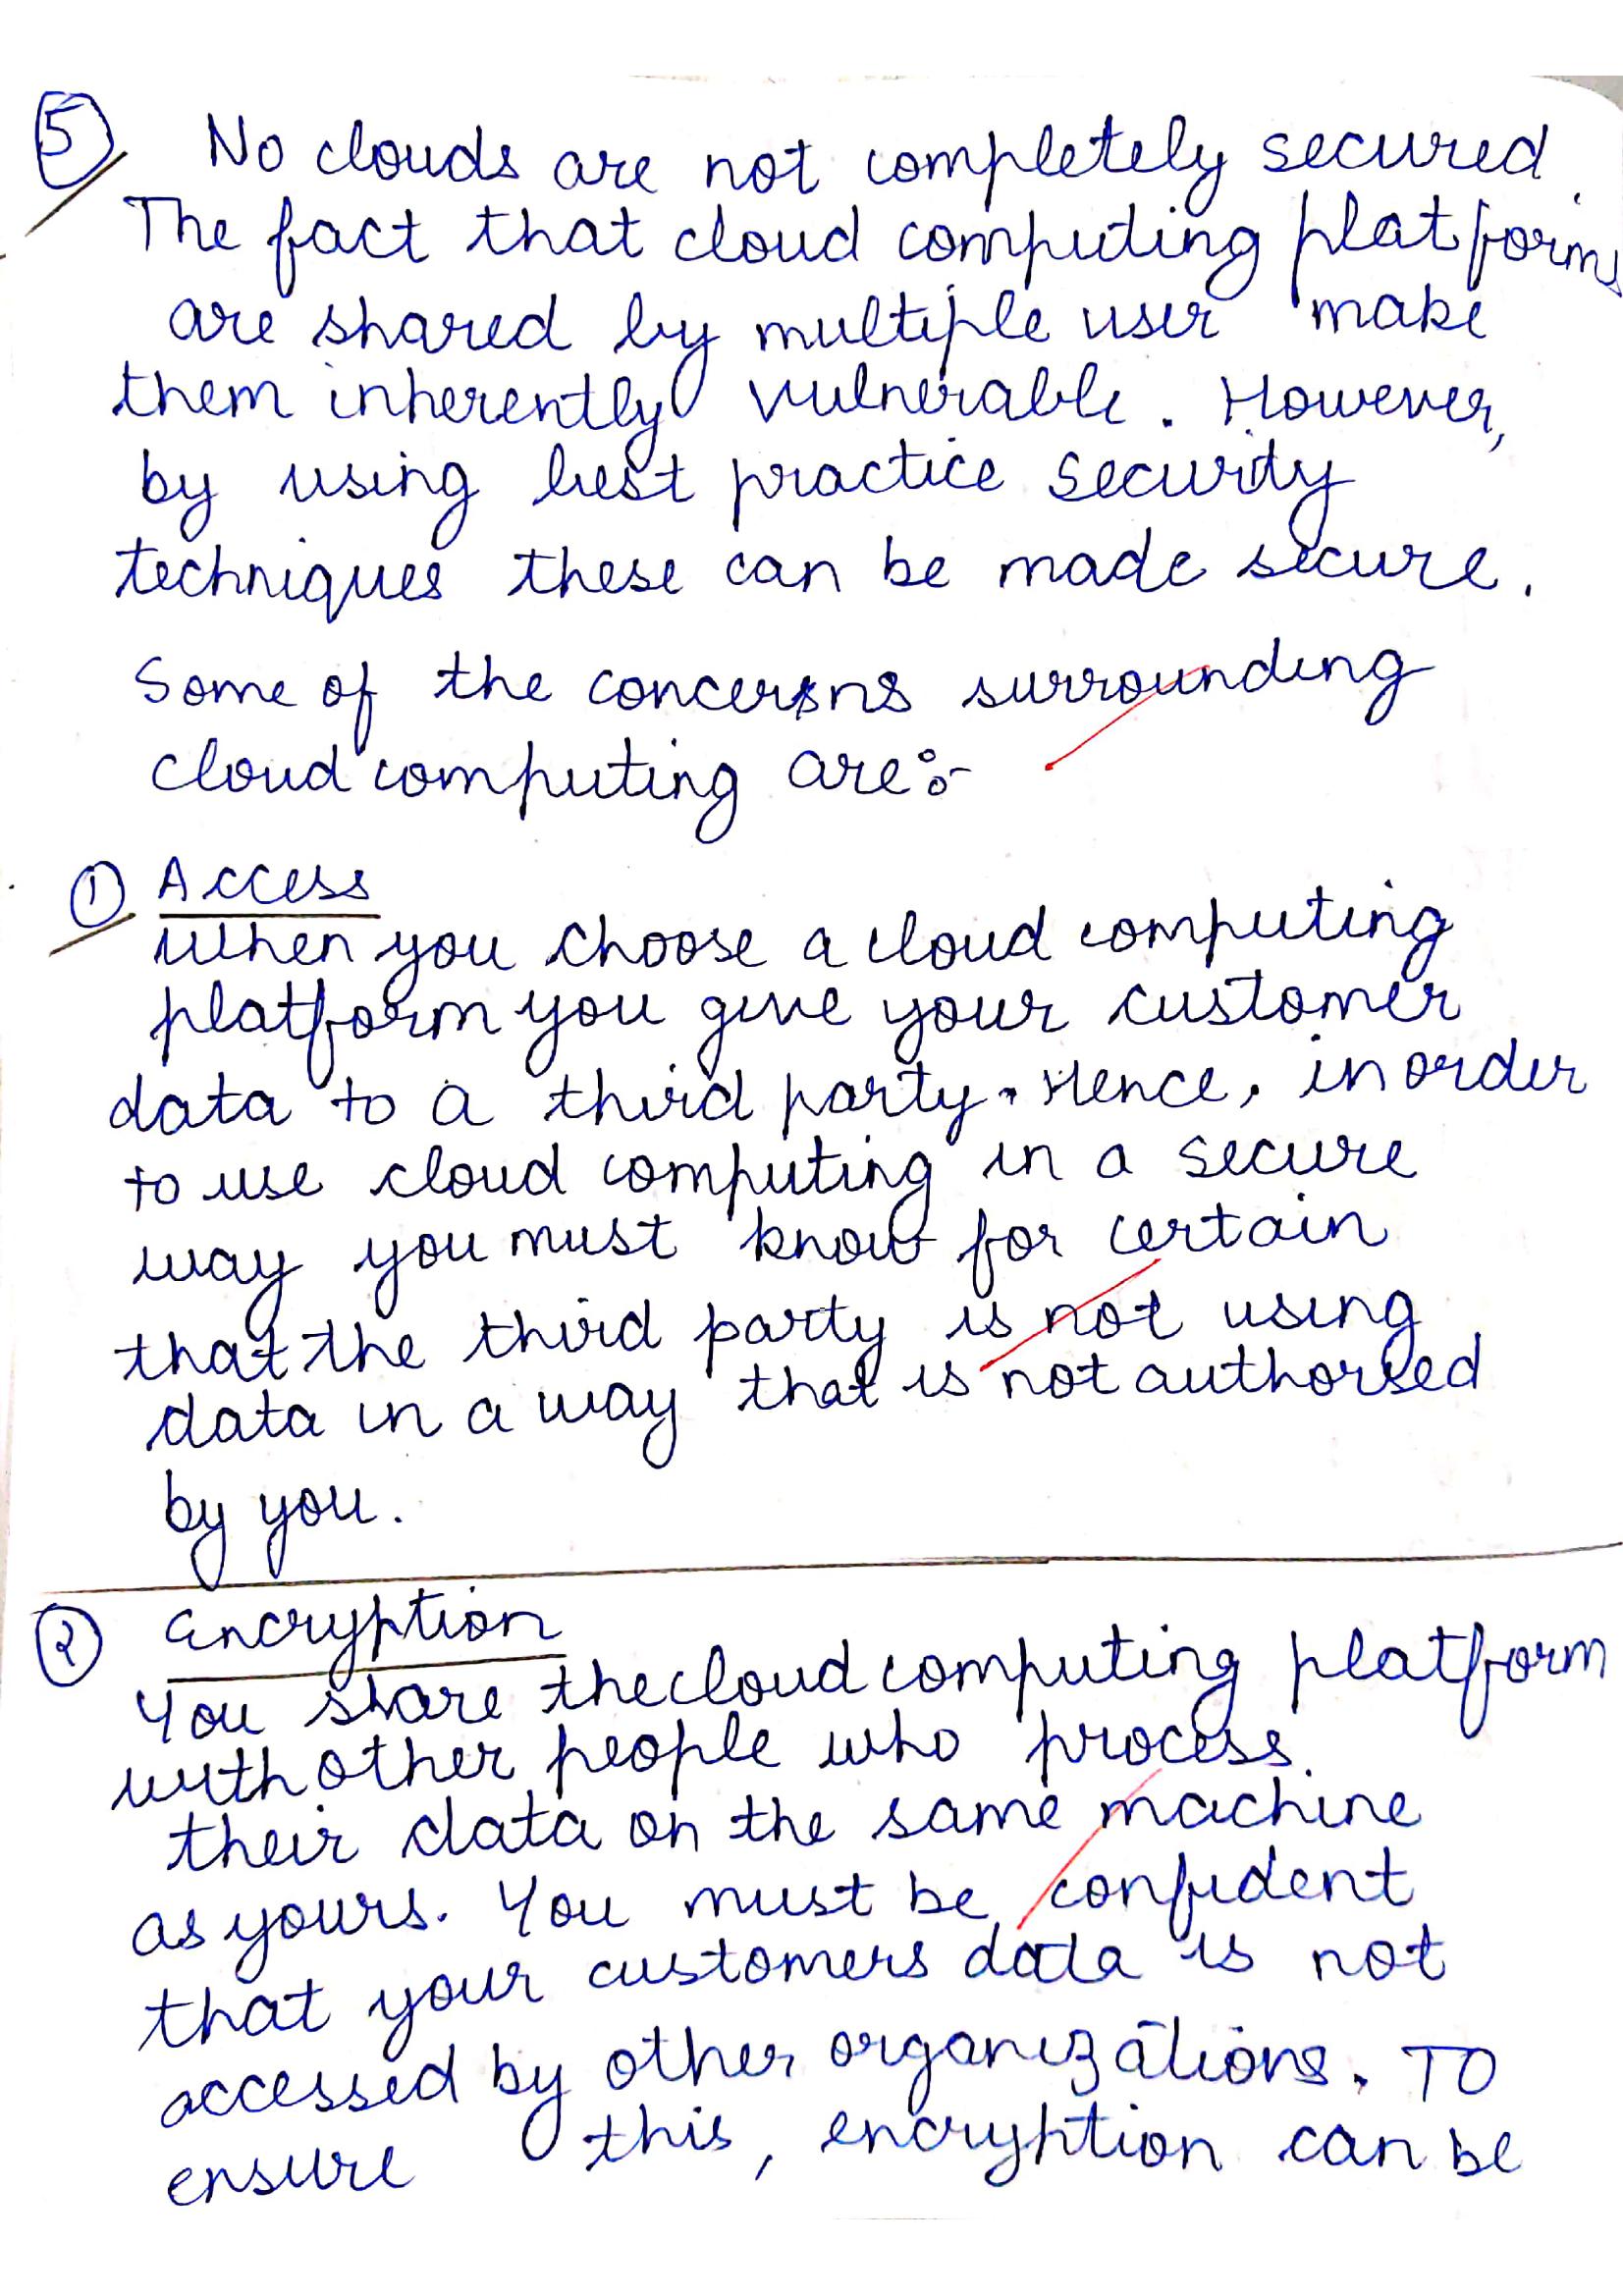 5 No clouds are not completely secured.
The fact that cloud computing platforms
are shared by multiple user make
them inherently vulnerable. However,
by using best practice security
techniques these can be made secure.
Some of the concerns surrounding
cloud computing are:-
1 Access
When you choose a cloud computing
platform you give your customer
data to a third party. Hence, in order
to use cloud computing in a secure
way you must know for certain
that the third party is not using
data in a way that is not authorised
by you.
2 Encryption
You share the cloud computing platform
with other people who process
their data on the same machine
as yours. You must be confident
that your customers data is not
accessed by other organizations. TO
ensure this, encryption can be